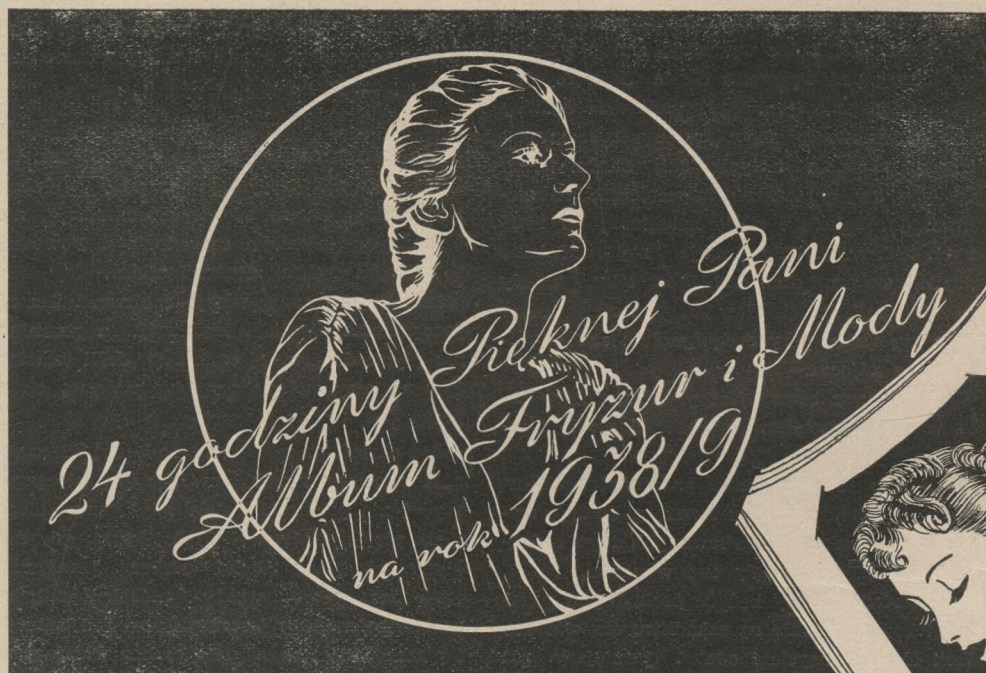 24 godziny Pięknej Pani
Album Fryzur i Mody
na rok 1938/9